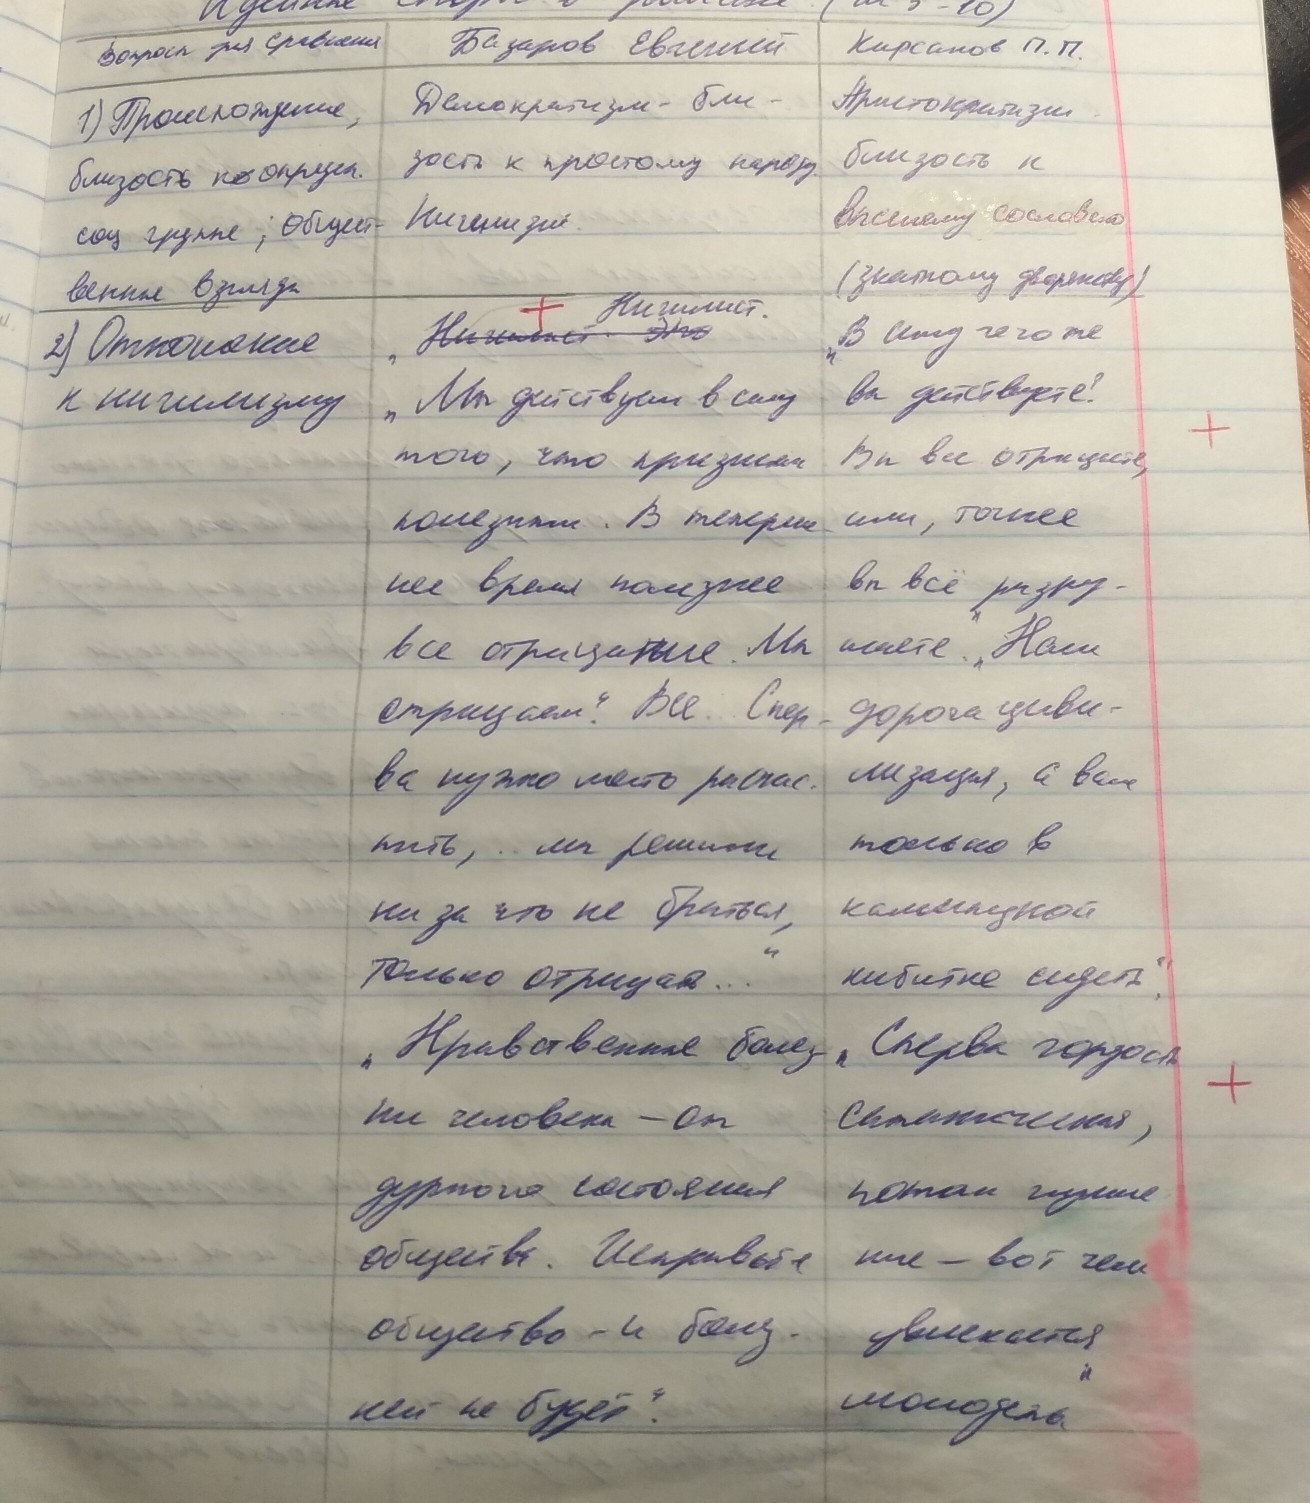 Идейные споры в романе (гл 5-10)
Вопросы для сравнения
Базаров Евгений
Кирсанов П.П.
1) Происхождение,
близость к опрдел.
соц группе; Общест-
венные взгляды
Демократизм - бли-
зость к простому народу.
Нигилизм.
Аристократизм
близость к
высшему сословию
(знатному дворянству)
2) Отношение
к нигилизму
„ Нигилист. Это
Нигилист.
„ Мы действуем в силу
того, что признаем
полезным. В теперш
нее время полезнее
все отрицание. Мы
отрицаем". Все. Спер-
ва нужно место расчис.
тить, .. мы решили
ни за что не браться,
только отрицать..."
„ Нравственные болез
ни человека – от
дурного состояния
общества. Исправьте
общество - и болез.
ней не будет".
„ В силу чего же
вы действуете?
Вы все отрицаете,
или, точнее
вы всё разру-
шаете". „ Нам
дорога циви-
лизация, а вам
только в
калмыцкой
кибитке сидеть".
„ Сперва гордость
сатаническая,
потом глумле
ние – вот чем
увлекается
молодежь"